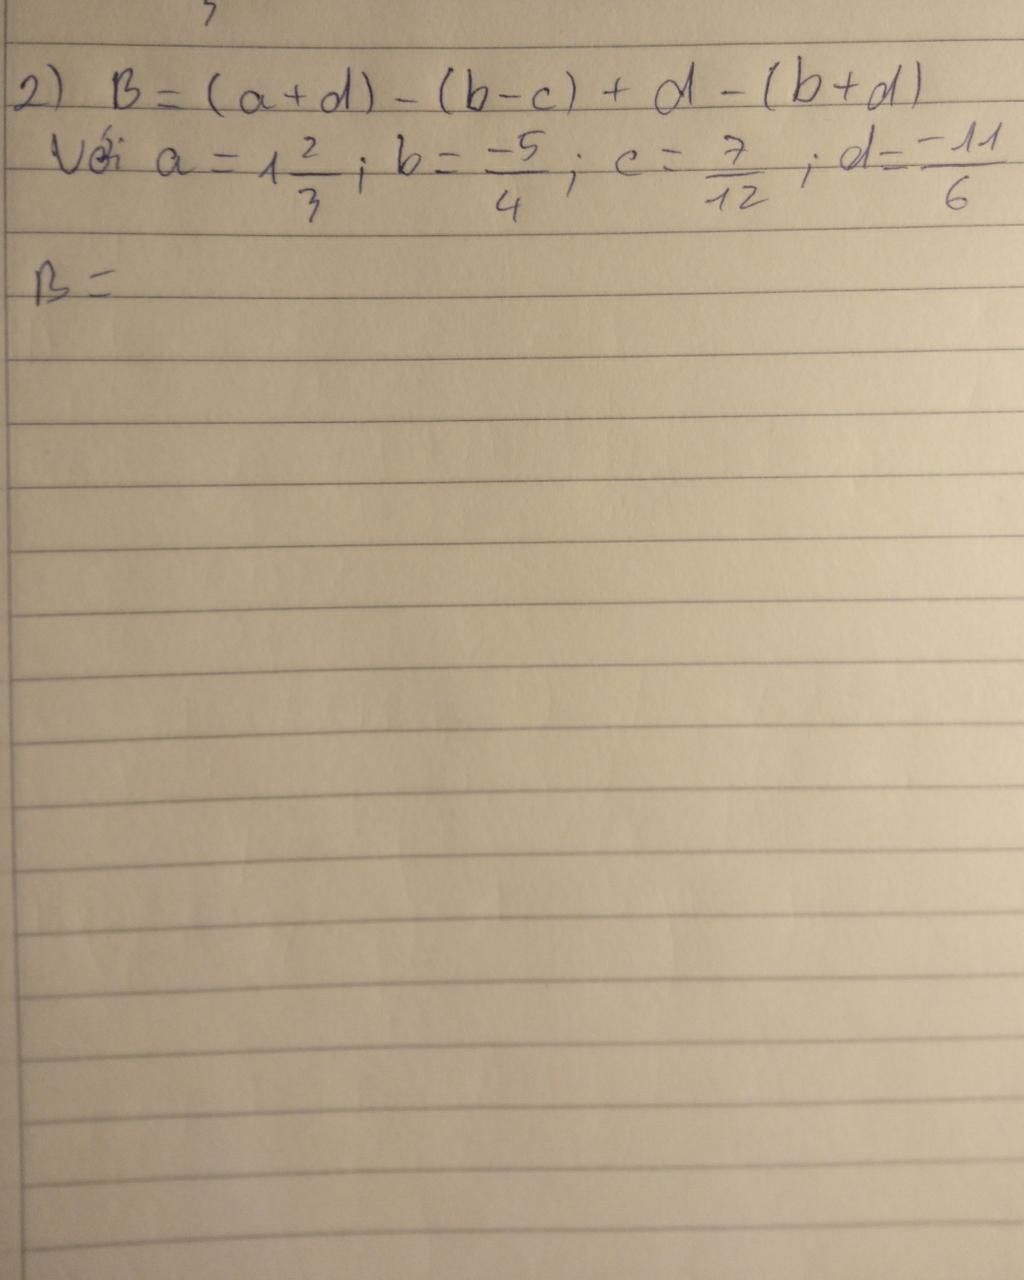 2) B = (a+d) - (b-c) + d - (b+d)
Với a = 1 2/3 ; b = -5/4 ; c = 7/12 ; d = -11/6
B =